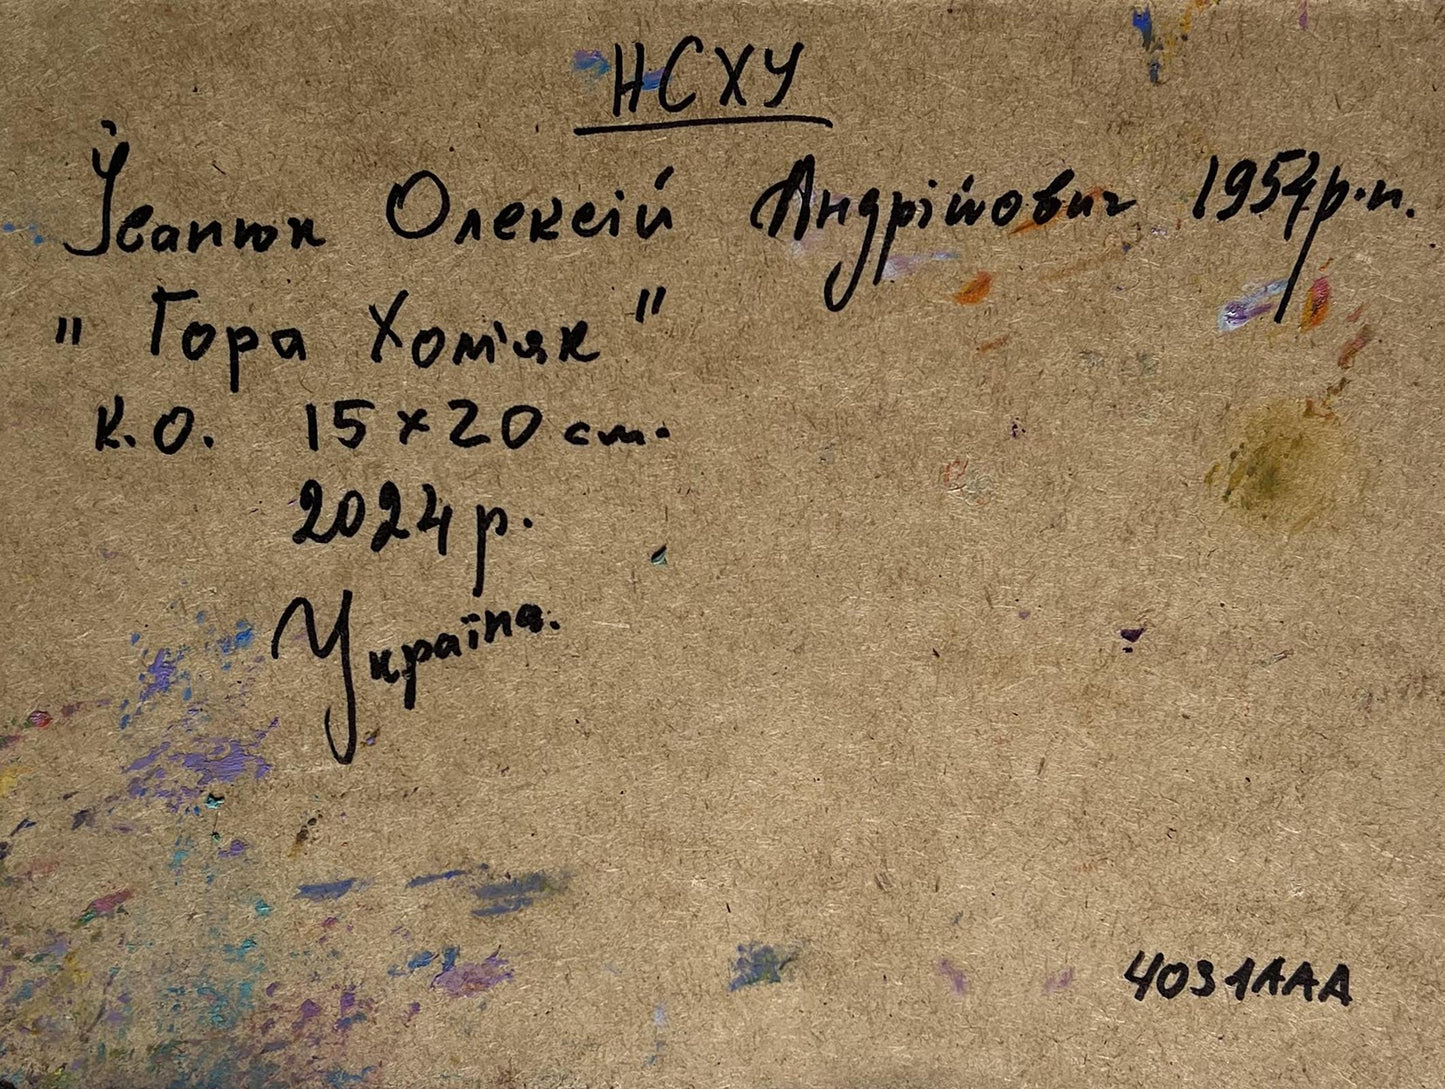 НСХУ
Іванюк Олексій Андрійович 1954р.н.
"Гора Хом'як"
к.о. 15×20 см.
2024р.
Україна.
4031ААА